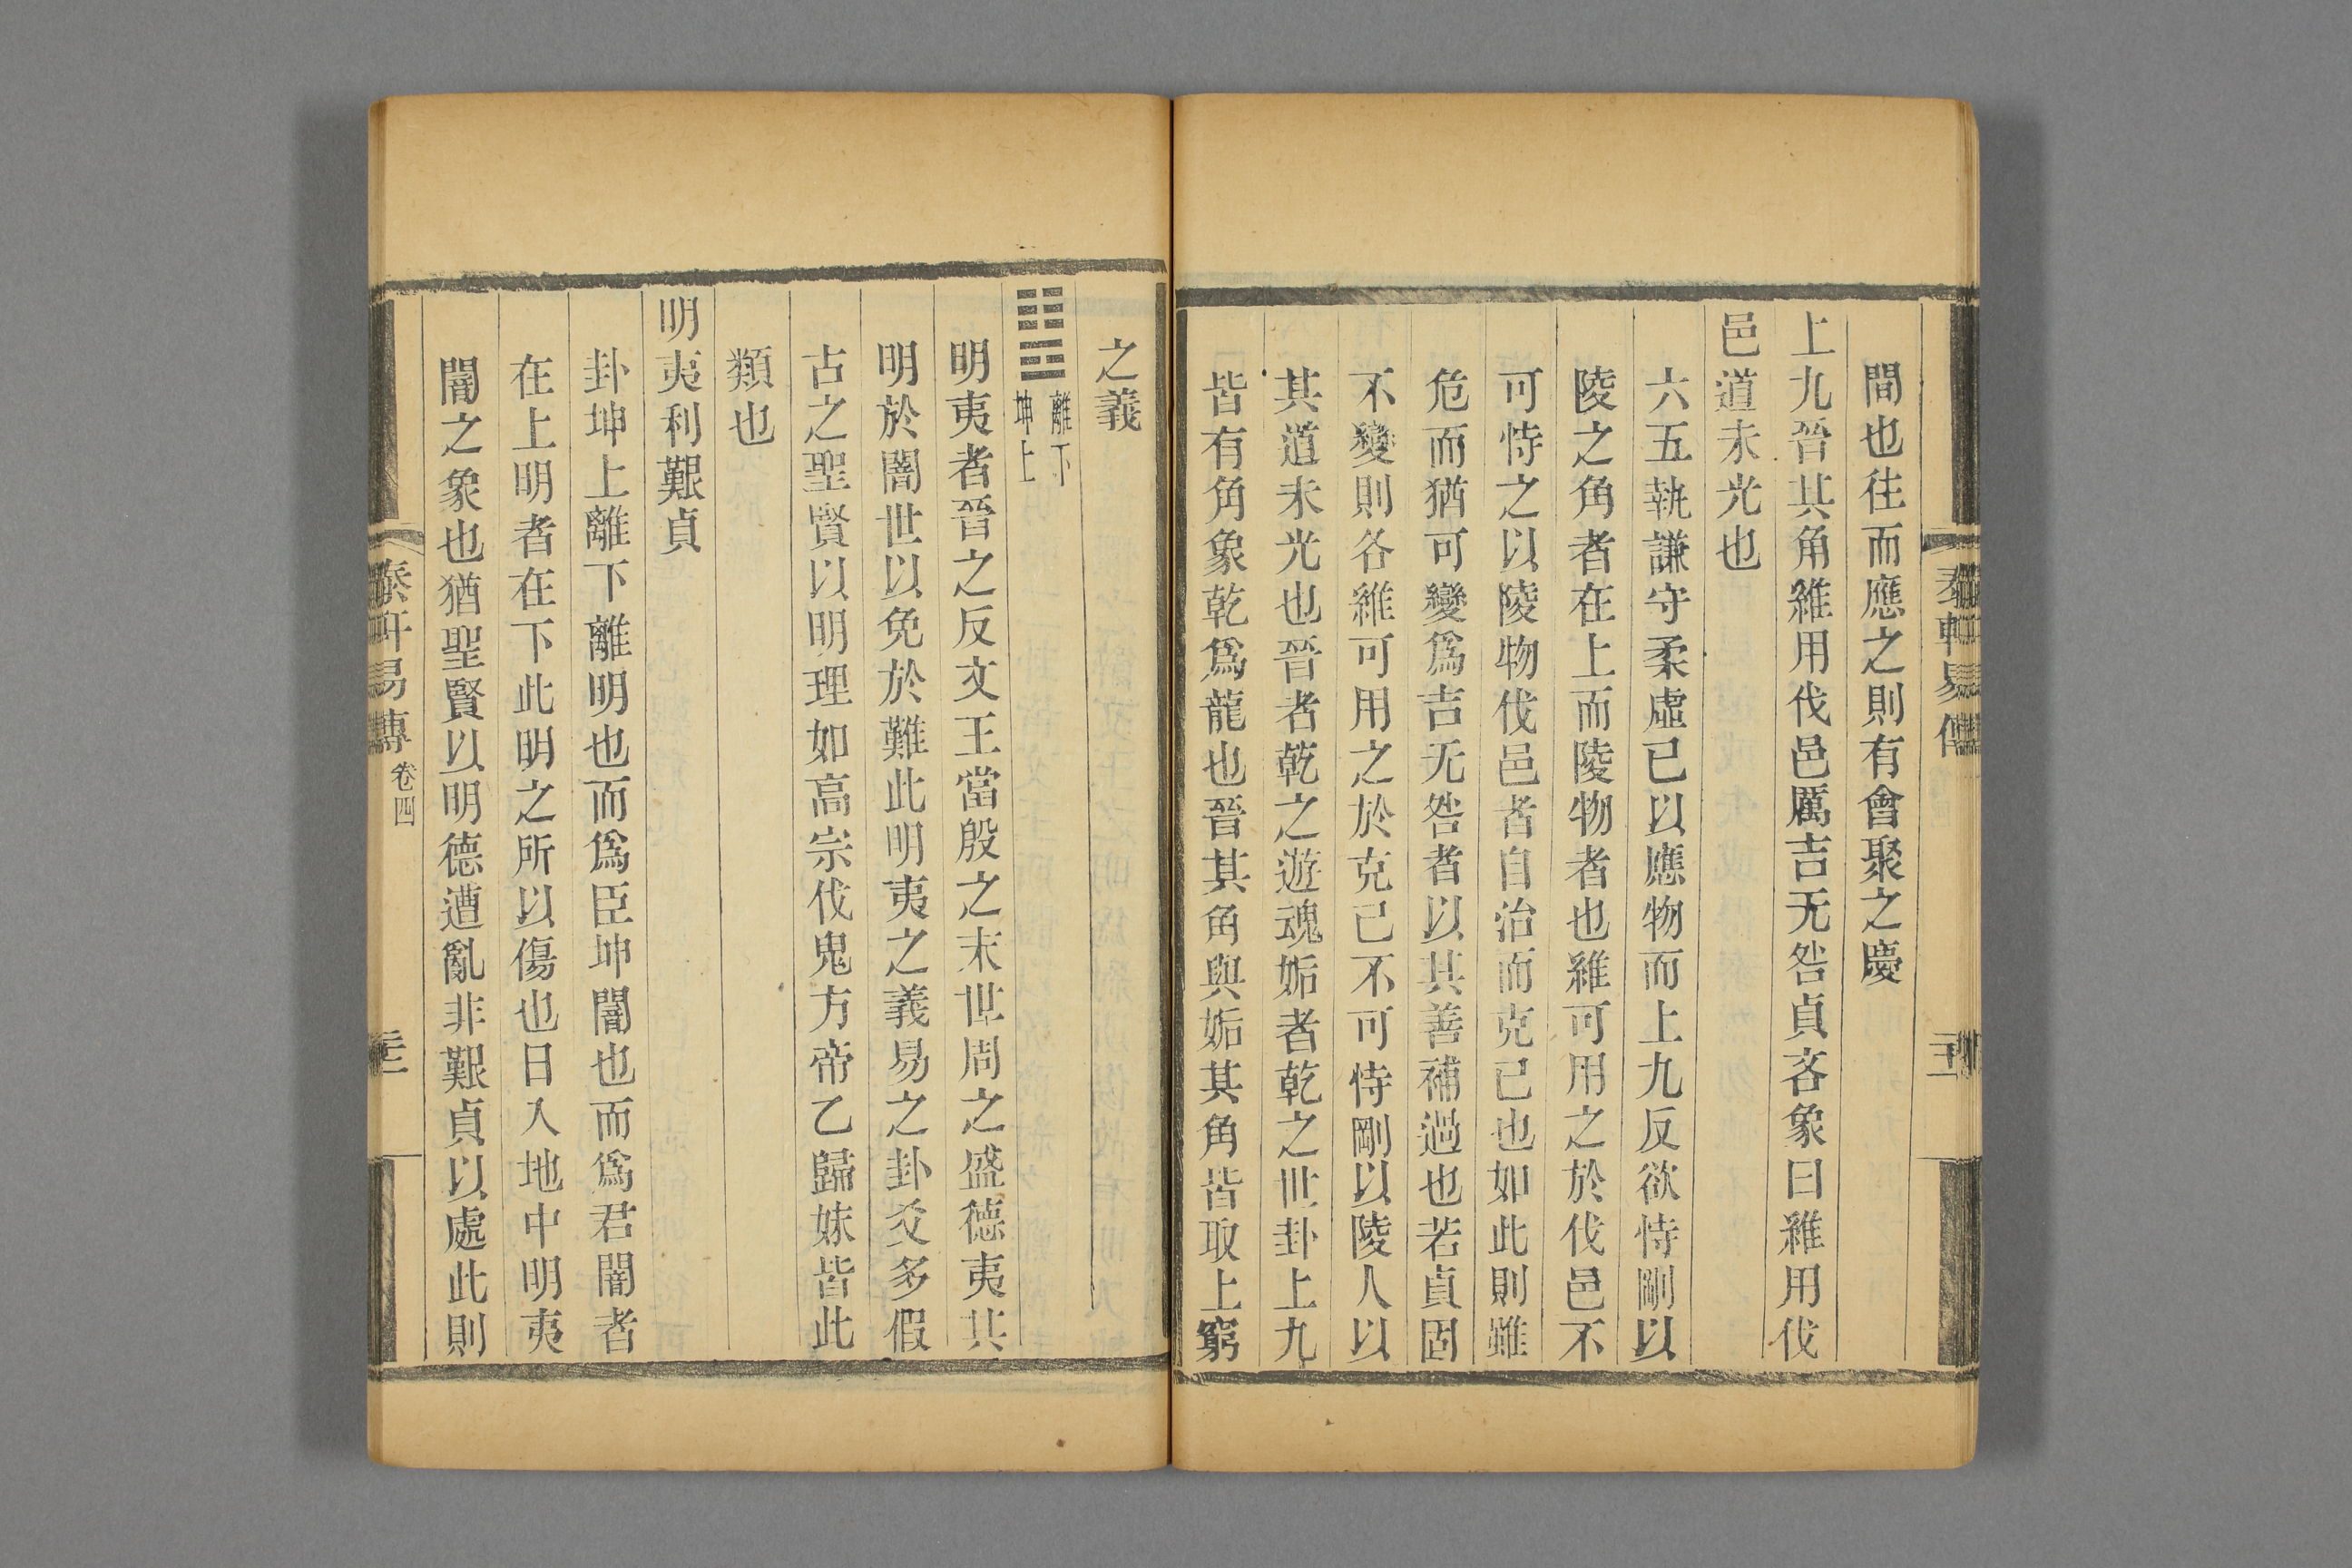 間也往而應之則有會聚之慶
上九晉其角維用伐邑厲吉无咎貞吝象曰維用伐
邑道未光也
六五執謙守柔虛已以應物而上九反欲恃剛以
陵之角者在上而陵物者也維可用之於伐邑不
可恃之以陵物伐邑者自治而克已也如此則雖
危而猶可變爲吉无咎者以其善補過也若貞固
不變則吝維可用之於克己不可恃剛以陵人以
其道未光也晉者乾之遊魂姤者乾之世卦上九
皆有角象乾爲龍也晉其角與姤其角皆取上窮
之義
離下
坤上
明夷者晉之反文王當殷之末世周之盛德夷其
明於闇世以免於難此明夷之義易之卦爻多假
古之聖賢以明理如高宗伐鬼方帝乙歸妹皆此
類也
明夷利艱貞
卦坤上離下離明也而爲臣坤闇也而爲君闇者
在上明者在下此明之所以傷也日入地中明夷
闇之象也猶聖賢以明德遭亂非艱貞以處此則
易傳 卷四